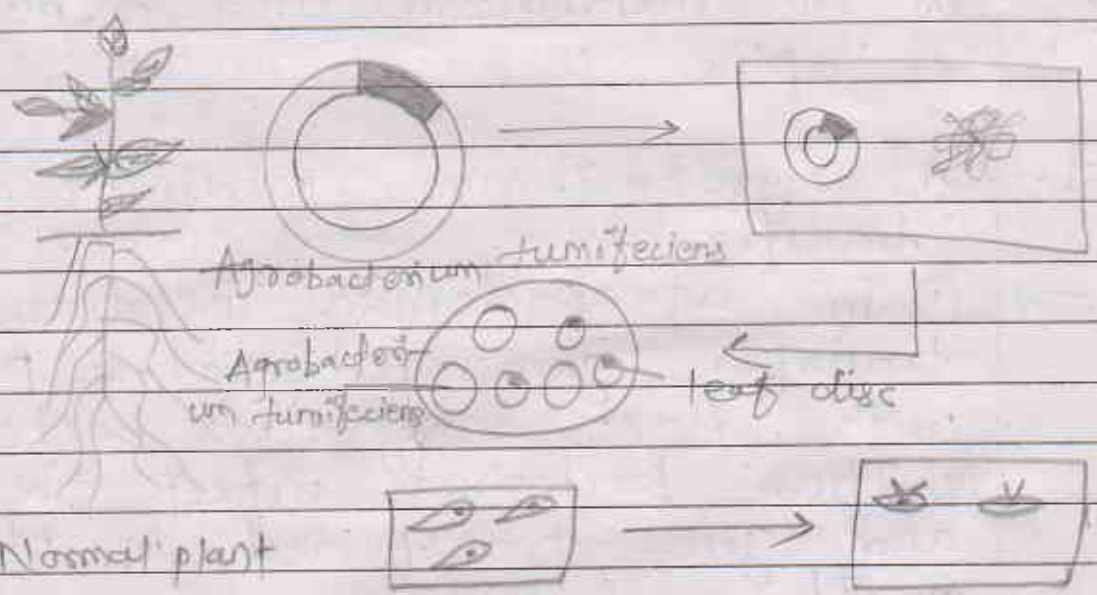 Agrobacterium tumifeciens
Agrobacteri-
um tumifeciens
leaf disc
Normal plant